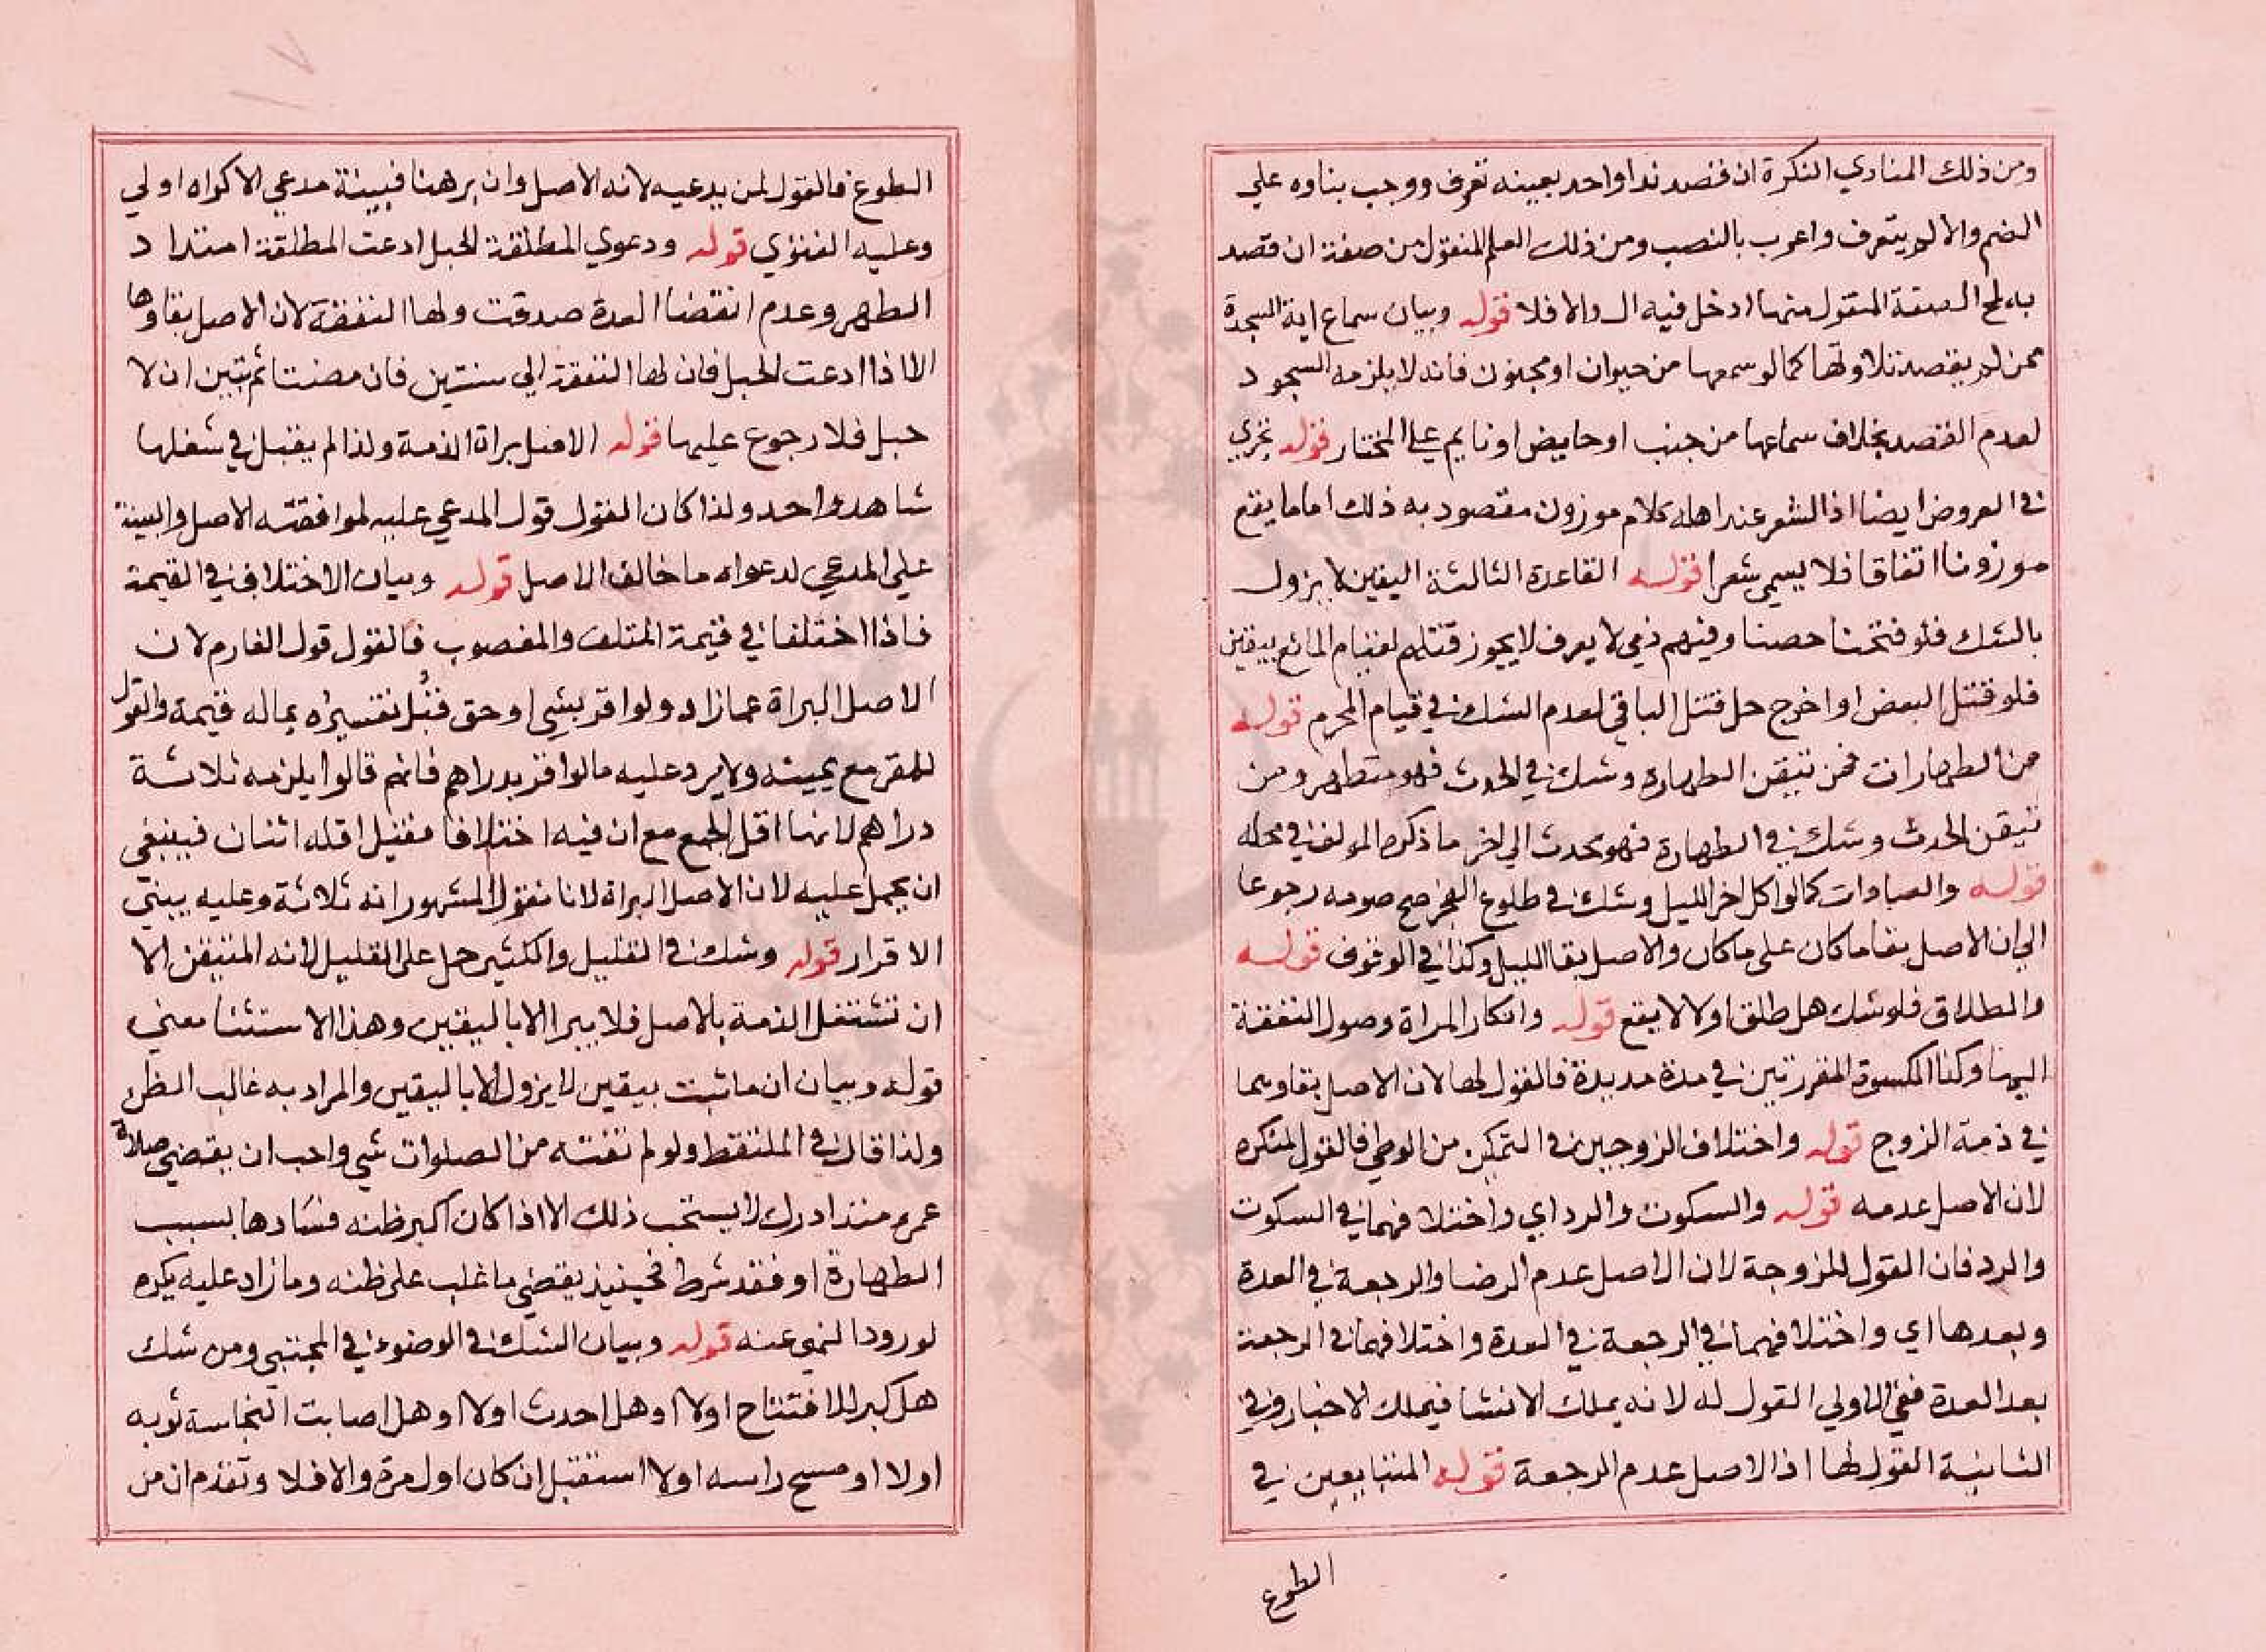 ومن ذلك المنادي النكرة ان قصد ندا واحد بعينه تعرف ووجب بناوه علي
الضم والا لم يتعرف واعرب بالنصب ومن ذلك العلم المنقول من صفة ان قصد
به لمح الصفة المنقول منها ادخل فيه ال والا فلا قوله وبيان سماع اية السجدة
ممن لم يقصد تلاوتها كما لو سمعها من حيوان او مجنون فانه لا يلزمه السجود
لعدم القصد بخلاف سماعها من جنب او حايض او نايم علي المختار قوله تجري
في العروض ايضا اذ الشعر عند اهله كلام موزون مقصود به ذلك اما ما يقع
موزونا اتفاقا فلا يسمي شعرا قوله القاعدة الثالثة اليقين لا يزول
بالشك فلو فتحنا حصنا وفيهم ذمي لا يعرف لا يجوز قتلهم لقيام المانع بيقين
فلو قتل البعض او اخرج حل قتل الباقي لعدم الشك في قيام المحرم قوله
من الطهارات فمن تيقن الطهارة وشك في الحدث فهو متطهر ومن
تيقن الحدث وشك في الطهارة فهو محدث الي اخر ما ذكره المولف في محله
قوله والعبادات كما لو اكل اخر الليل وشك في طلوع الفجر صح صومه رجوعا
الي ان الاصل بقا ما كان علي ما كان والاصل بقا الليل وكذا في الوقوف قوله
والطلاق فلو شك هل طلق اولا لا يقع قوله وانكار المراة وصول النفقة
اليها وكذا الكسوة المقررتين في مدة مديدة فالقول لها لان الاصل بقاوهما
في ذمة الزوج قوله واختلاف الزوجين في التمكين من الوطي فالقول لمنكره
لان الاصل عدمه قوله والسكوت والرد اي واختلافهما في السكوت
والرد فان القول للزوجة لان الاصل عدم الرضا والرجعة في العدة
وبعدها اي واختلافهما في الرجعة في العدة واختلافهما في الرجعة
بعد العدة ففي الاولي القول له لانه يملك الانشا فيملك الاخبار وفي
الثانية القول لها اذ الاصل عدم الرجعة قوله المتبايعين في
الطوع
الطوع فالقول لمن يدعيه لانه الاصل وان برهنا فبينة مدعي الاكراه اولي
وعليه الفتوي قوله ودعوي المطلقة الحبل ادعت المطلقة امتداد
الطهر وعدم انقضا العدة صدقت ولها النفقة لان الاصل بقاوها
الا اذا ادعت الحبل فان لها النفقة الي سنتين فان مضتا ثم تبين ان لا
حبل فلا رجوع عليها قوله الاصل براة الذمة ولذا لم يقبل في شغلها
شاهد واحد ولذا كان القول قول المدعي عليه لموافقته الاصل والبينة
علي المدعي لدعواه ما خالف الاصل قوله وبيان الاختلاف في القيمة
فاذا اختلفا في قيمة المتلف والمغصوب فالقول قول الغارم لان
الاصل البراة عما زاد ولو اقر بشي او حق قبل تفسيره بما له قيمة والقول
للمقر مع يمينه ولا يرد عليه ما لو اقر بدراهم فانهم قالوا يلزمه ثلاثة
دراهم لانها اقل الجمع مع ان فيه اختلافا فقيل اقله اثنان فينبغي
ان يحمل عليه لان الاصل البراة لانا نقول المشهور انه ثلاثة وعليه يبتني
الاقرار قوله وشك في القليل والكثير حمل علي القليل لانه المتيقن الا
ان تشتغل الذمة بالاصل فلا يبرا الا باليقين وهذا الاستثنا معني
قوله وبيان ان ما ثبت بيقين لا يزول الا باليقين والمراد به غالب الظن
ولذا قال في الملتقط ولو لم تفته من الصلوات شي واحب ان يقضي صلاة
عمره منذ ادرك لا يستحب ذلك الا اذا كان اكبر ظنه فسادها بسبب
الطهارة او فقد شرط فحينيذ يقضي ما غلب علي ظنه وما زاد عليه يكره
لورود النهي عنه قوله وبيان الشك في الوضوء في المجتبي ومن شك
هل كبر للافتتاح اولا او هل احدث اولا او هل اصابت النجاسة ثوبه
اولا او مسح راسه اولا استقبل ان كان اول مرة والا فلا وتقدم ان من